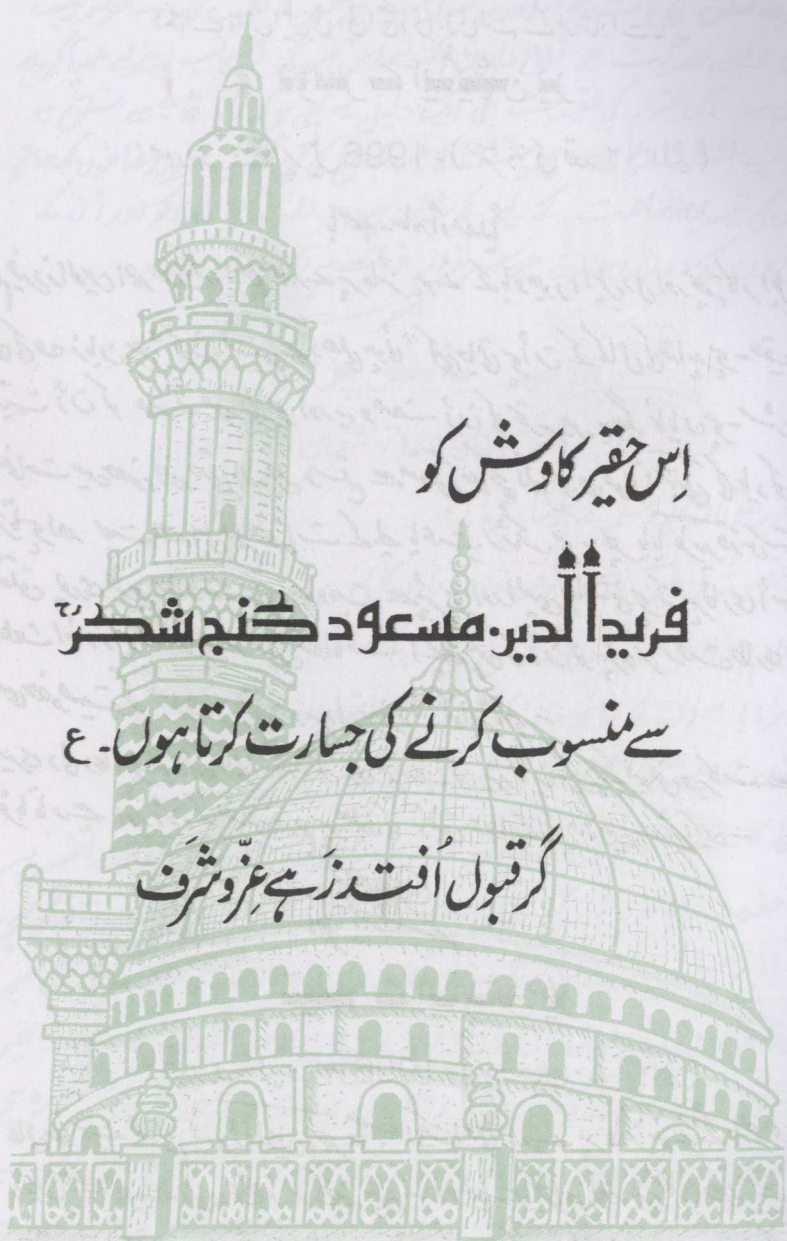 اِس حقیر کاوش کو
فریدالدین مسعود گنج شکرؒ
سے منسوب کرنے کی جسارت کرتا ہوں۔ ع
گر قبول اُفتد زَہے عِزّو شَرَف